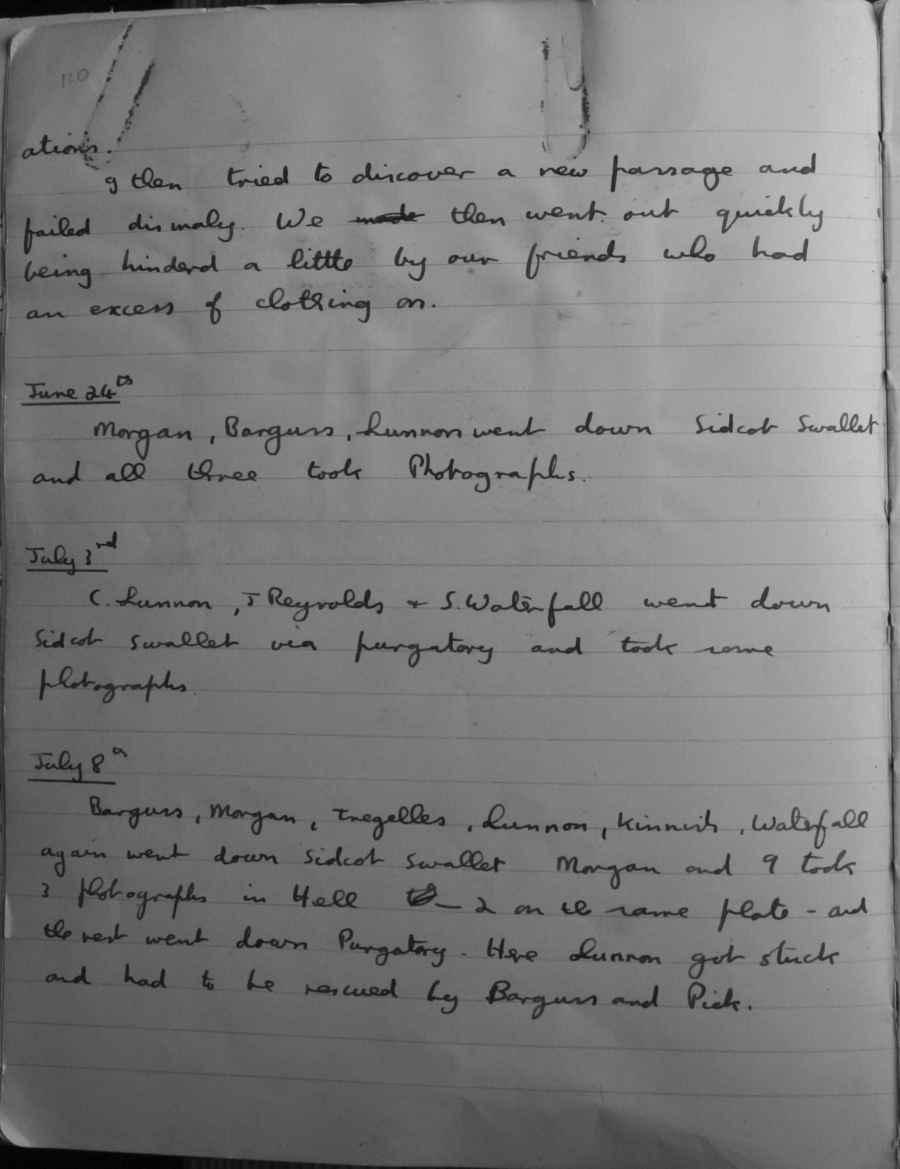 110
ations.
I then tried to discover a new passage and
failed dismaly. We made then went out quickly
being hinderd a little by our friends who had
an excess of clothing on.
June 24th
Morgan, Barguss, Lunnon went down Sidcot Swallet
and all three took Photographs.
July 3rd
C. Lunnon, J Reynolds + S. Waterfall went down
Sidcot Swallet via purgatory and took some
photographs.
July 8th
Barguss, Morgan, Tregelles, Lunnon, Kinnish, Waterfall
again went down Sidcot Swallet Morgan and I took
3 photographs in Hell – 2 on the same plate – and
the rest went down Purgatory. Here Lunnon got stuck
and had to be rescued by Barguss and Pick.